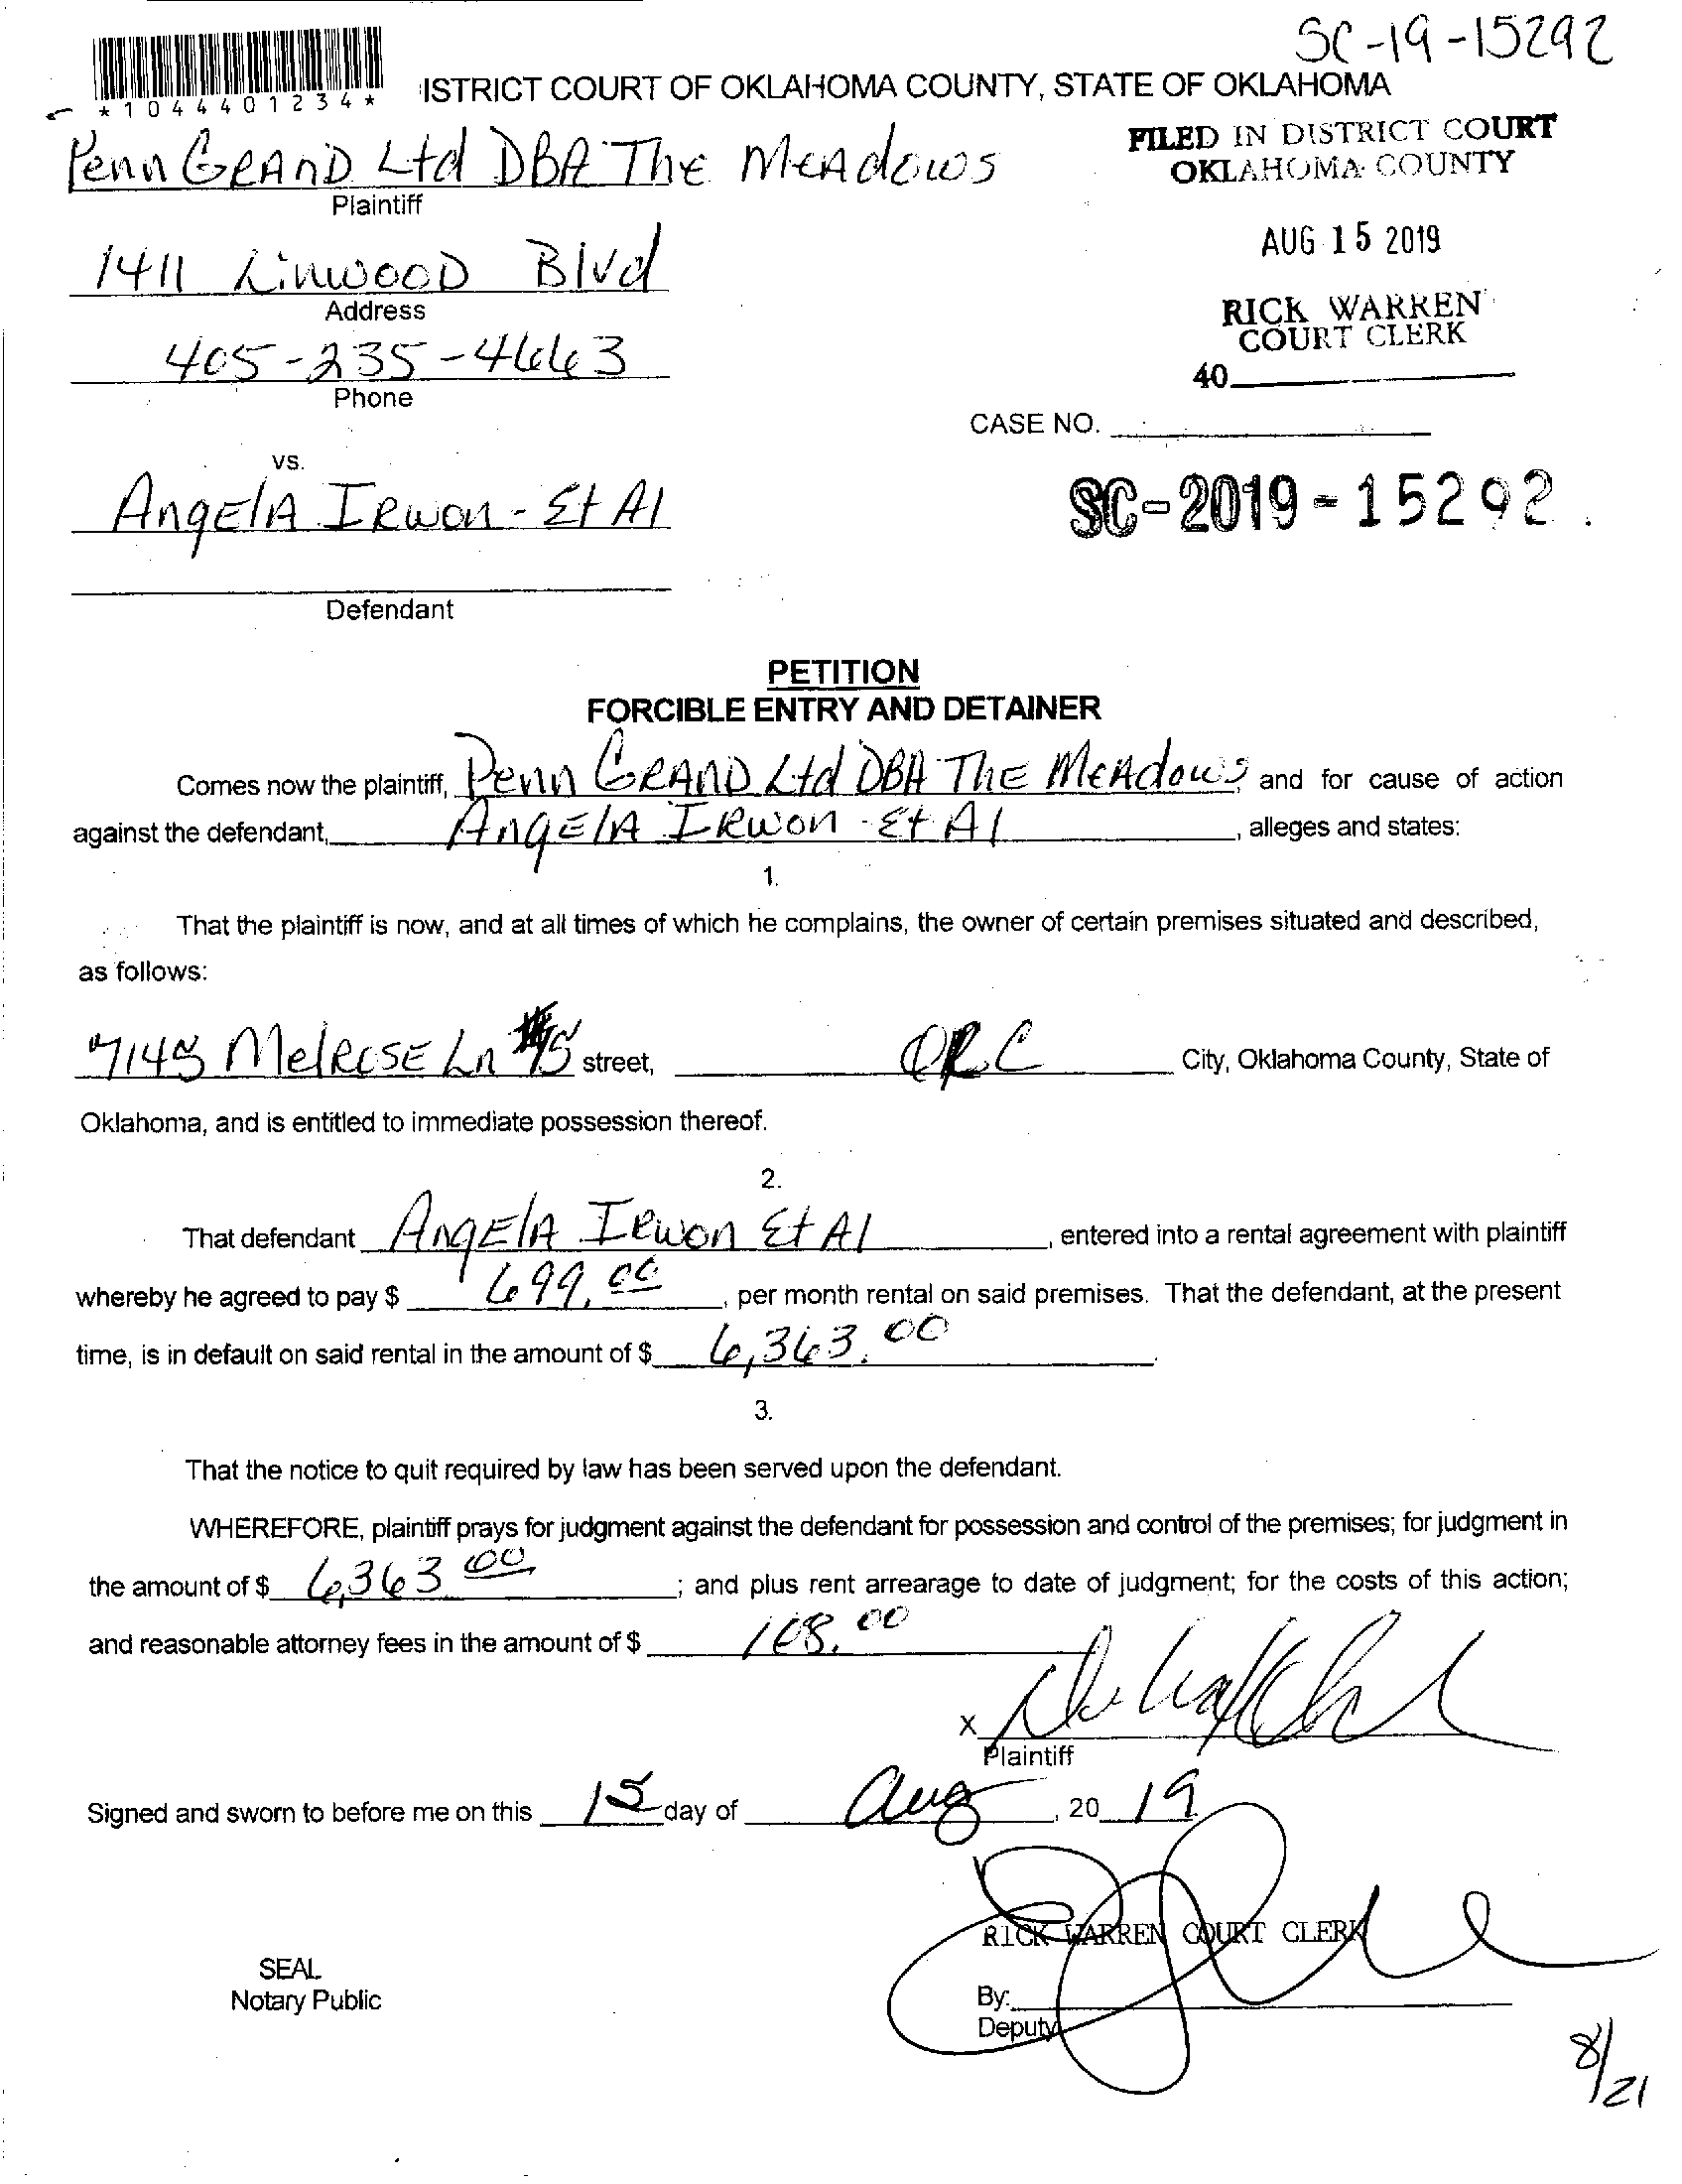 SC-19-15292
*1044401234*
ISTRICT COURT OF OKLAHOMA COUNTY, STATE OF OKLAHOMA
Penn GRAND Ltd DBA The MEAdows
Plaintiff
FILED IN DISTRICT COURT
OKLAHOMA COUNTY
1411 LinwooD Blvd
Address
AUG 15 2019
405-235-4663
Phone
RICK WARREN
COURT CLERK
40
CASE NO.
vs.
AngElA IRwon - Et Al
SC-2019-15292
Defendant
PETITION
FORCIBLE ENTRY AND DETAINER
Comes now the plaintiff, Penn GRAND Ltd DBA The MEAdows, and for cause of action
against the defendant, AngElA IRwon - Et Al, alleges and states:
1.
That the plaintiff is now, and at all times of which he complains, the owner of certain premises situated and described,
as follows:
7145 MelROSE Ln street, City, Oklahoma County, State of
Oklahoma, and is entitled to immediate possession thereof.
2.
That defendant AngElA IRwon Et Al, entered into a rental agreement with plaintiff
whereby he agreed to pay $ 699.00, per month rental on said premises. That the defendant, at the present
time, is in default on said rental in the amount of $ 6,363.00.
3.
That the notice to quit required by law has been served upon the defendant.
WHEREFORE, plaintiff prays for judgment against the defendant for possession and control of the premises; for judgment in
the amount of $ 6,363 00; and plus rent arrearage to date of judgment; for the costs of this action;
and reasonable attorney fees in the amount of $ 108.00
X
Plaintiff
Signed and sworn to before me on this 15 day of Aug, 20 19
RICK WARREN COURT CLERK
SEAL
Notary Public
By:
Deputy
8/21